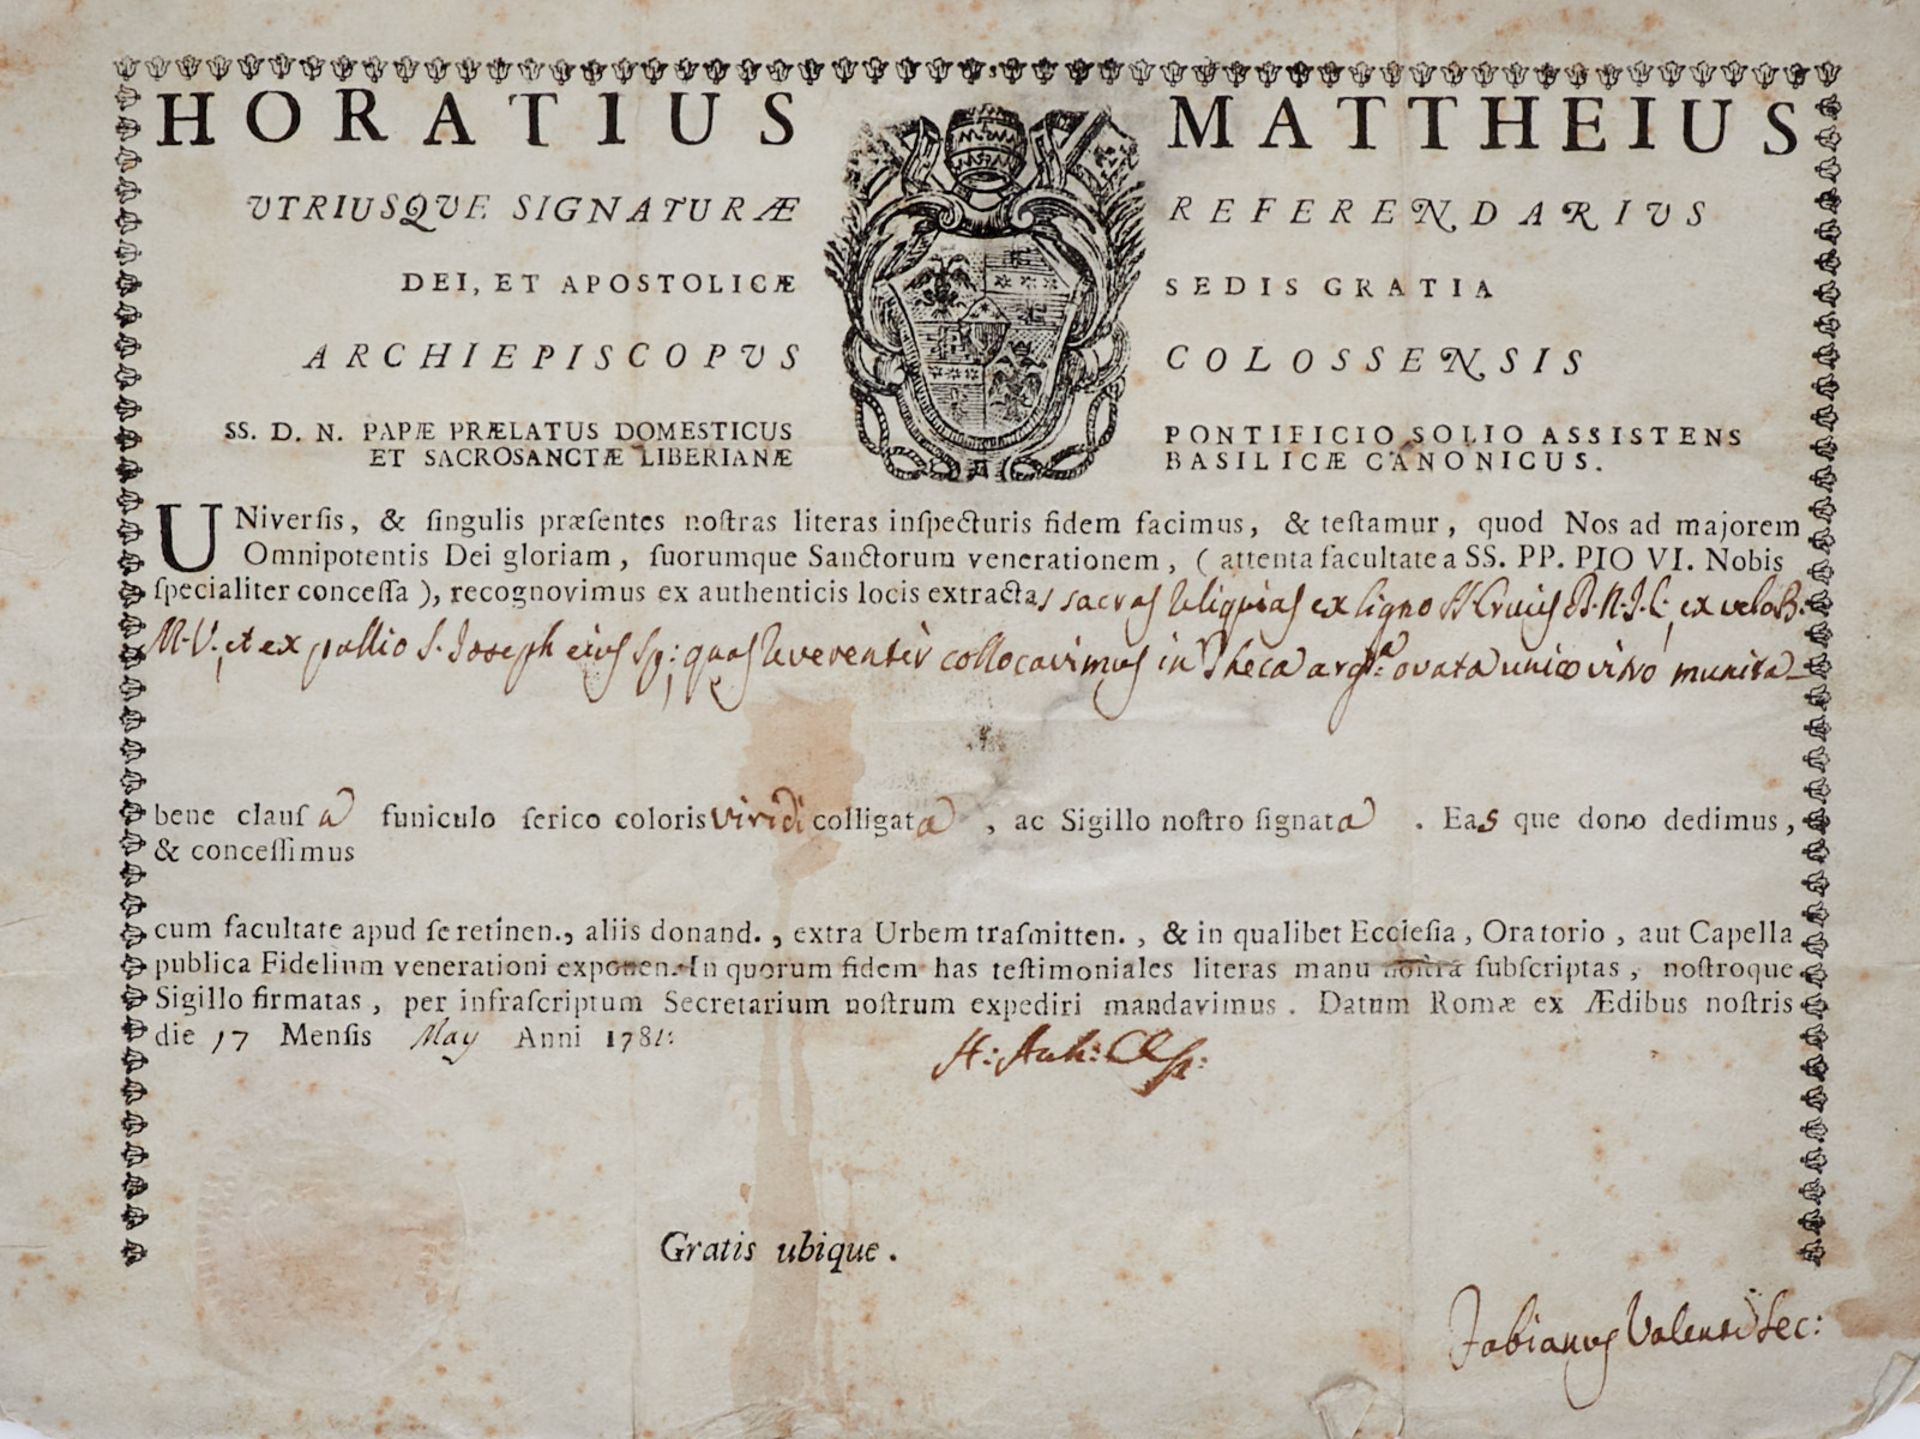 HORATIUS MATTHEIUS
UTRIUSQUE SIGNATURÆ REFERENDARIUS
DEI, ET APOSTOLICÆ SEDIS GRATIA
ARCHIEPISCOPUS COLOSSENSIS
SS. D. N. PAPÆ PRÆLATUS DOMESTICUS PONTIFICIO SOLIO ASSISTENS
ET SACROSANCTÆ LIBERIANÆ BASILICÆ CANONICUS.
UNiverſis, & ſingulis præſentes noſtras literas inſpecturis fidem facimus, & teſtamur, quod Nos ad majorem
Omnipotentis Dei gloriam, ſuorumque Sanctorum venerationem, (attenta facultate a SS. PP. PIO VI. Nobis
ſpecialiter conceſſa), recognovimus ex authenticis locis extractas sacras Reliquias ex ligno SS Crucis D.N.J.C., ex velo B.
M.V., et ex pallio S. Joseph eius Sp; quas Reverenter collocavimus in Theca argta ovata unico vitro munita
bene clauſa funiculo ſerico coloris viridi colligata, ac Sigillo noſtro ſignata. Easque dono dedimus,
& conceſſimus
cum facultate apud ſe retinen., aliis donand., extra Urbem traſmitten., & in qualibet Eccleſia, Oratorio, aut Capella
publica Fidelium venerationi exponen. In quorum fidem has teſtimoniales literas manu noſtra ſubſcriptas, noſtroque
Sigillo firmatas, per infraſcriptum Secretarium noſtrum expediri mandavimus. Datum Romæ ex Ædibus noſtris
die 17 Menſis May Anni 1781:
Gratis ubique.
Fabianus Sec: